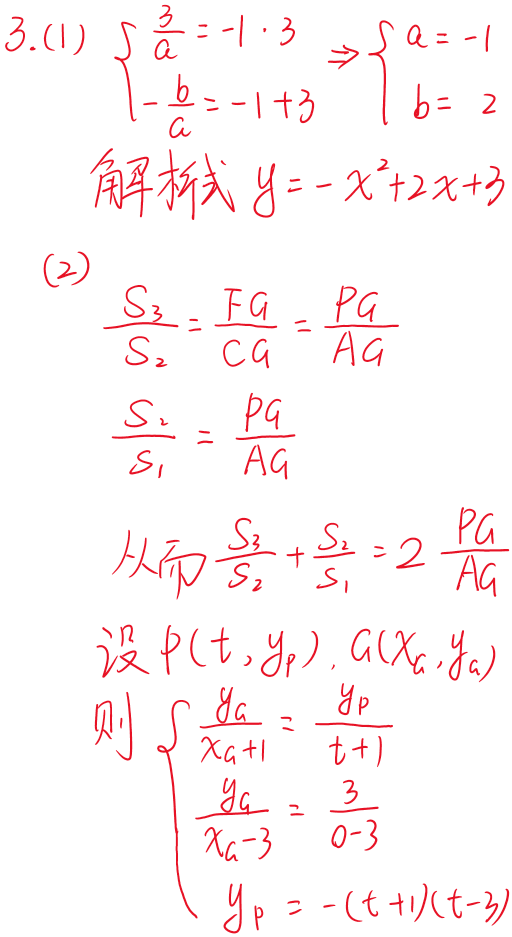 3.(1) { 3/a = -1·3 ⇒ { a = -1
-b/a = -1+3 b = 2
解析式 y = -x²+2x+3
(2)
S₃/S₂ = FG/CG = PG/AG
S₂/S₁ = PG/AG
从而 S₃/S₂ + S₂/S₁ = 2 PG/AG
设 P(t, y_P), G(x_G, y_G)
则 { y_G/(x_G+1) = y_P/(t+1)
y_G/(x_G-3) = 3/(0-3)
y_P = -(t+1)(t-3)